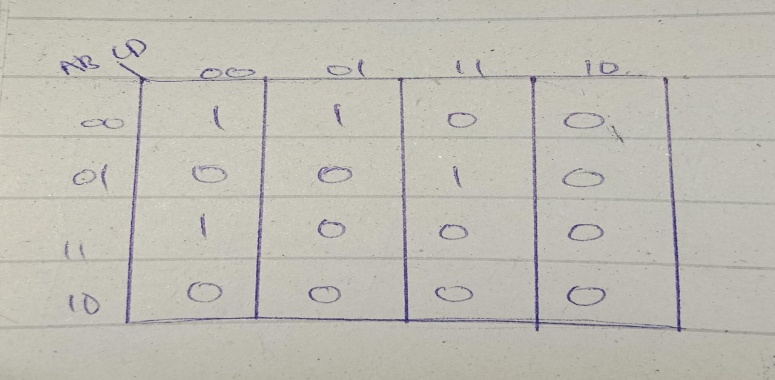 AB CD 00 01 11 10
00 1 1 0 0
01 0 0 1 0
11 1 0 0 0
10 0 0 0 0